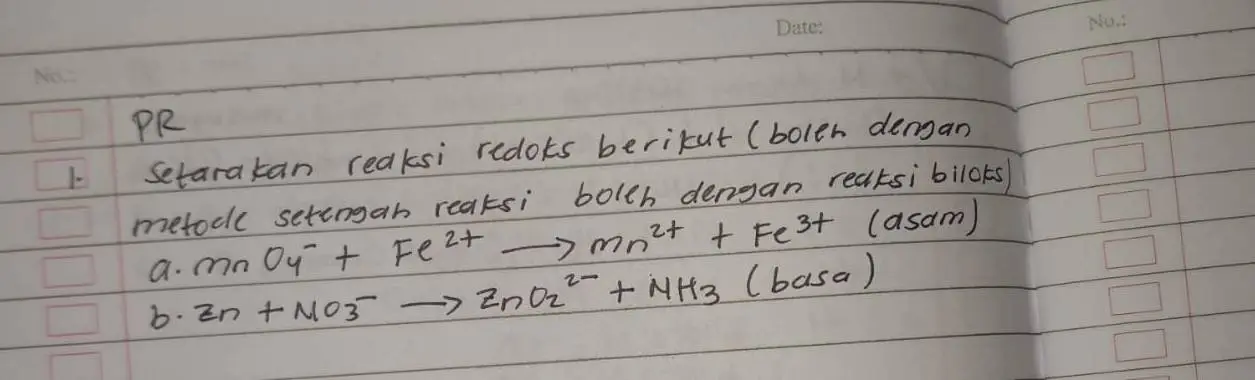 Date:
No.:
No.:
PR
1. Setarakan reaksi redoks berikut (boleh dengan
metode setengah reaksi boleh dengan reaksi biloks)
a. mnO4⁻ + Fe²⁺ → mn²⁺ + Fe³⁺ (asam)
b. Zn + NO3⁻ → ZnO2²⁻ + NH3 (basa)